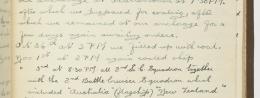 after which we prepared for coaling after
which we remained at our anchorage for a
few days again awaiting orders.
N 26th At 2 PM we filled up with coal.
Nov 1st at 2 PM
" 2nd At 8.30 PM all 2nd L C Squadron together
with the 2nd Battle Cruiser Squadron which
included "Australia" (flagship) "New Zealand"